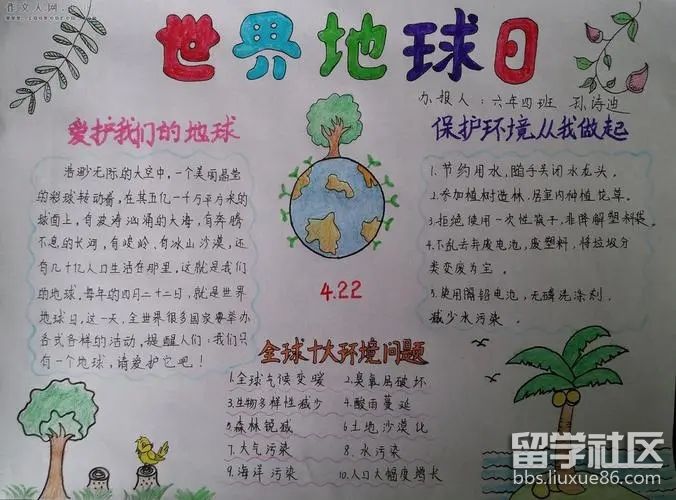 作文人网
世界地球日
办报人：六年四班 孙诗迪
爱护我们的地球
浩瀚无际的太空中，一个美丽晶莹
的彩球转动着，在其五亿一千万平方米的
球面上，有波涛汹涌的大海，有奔腾
不息的长河，有峻岭，有冰山沙漠，还
有几十亿人口生活在那里，这就是我们
的地球，每年的四月二十二日，就是世界
地球日，这一天，全世界很多国家要举办
各式各样的活动，提醒人们：我们只
有一个地球，请爱护它吧！
4.22
保护环境从我做起
1.节约用水，随手关闭水龙头。
2.参加植树造林，居室内种植花草。
3.拒绝使用一次性筷子，非降解塑料袋。
4.不乱丢弃废电池，废塑料，将垃圾分
类变废为宝。
5.使用隔铅电池，无磷洗涤剂，
减少水污染。
全球十大环境问题
1.全球气候变暖 2.臭氧层破坏
3.生物多样性减少 4.酸雨蔓延
5.森林锐减 6.土地沙漠化
7.大气污染 8.水污染
9.海洋污染 10.人口大幅度增长
留学社区
bbs.liuxue86.com